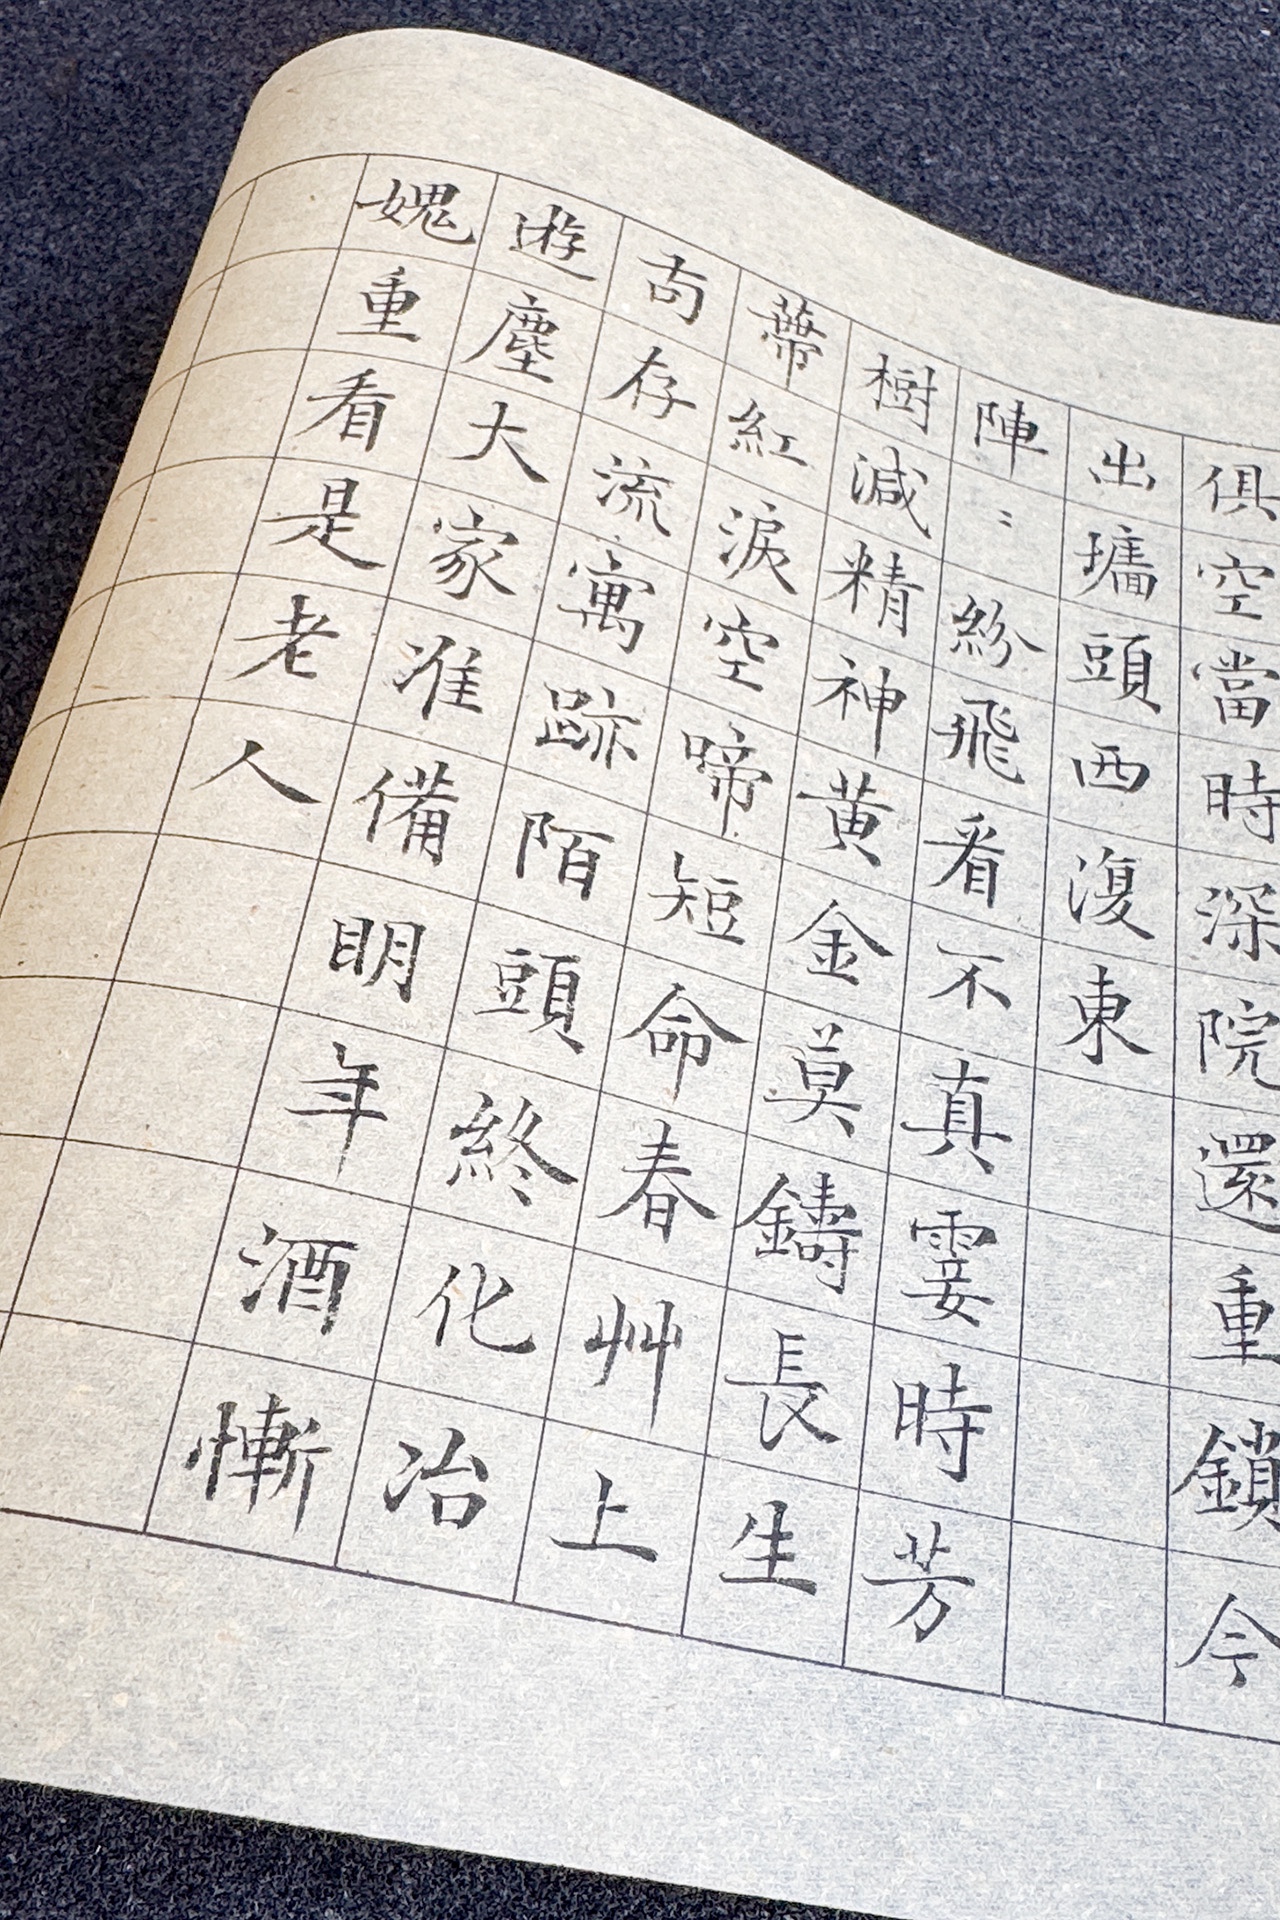 俱空當時深院還重鎖今
出墻頭西復東
陣〻紛飛看不真霎時芳
樹減精神黄金莫鑄長生
蒂紅淚空啼短命春艸上
尚存流寓跡陌頭終化冶
遊塵大家准備明年酒慚
媿重看是老人